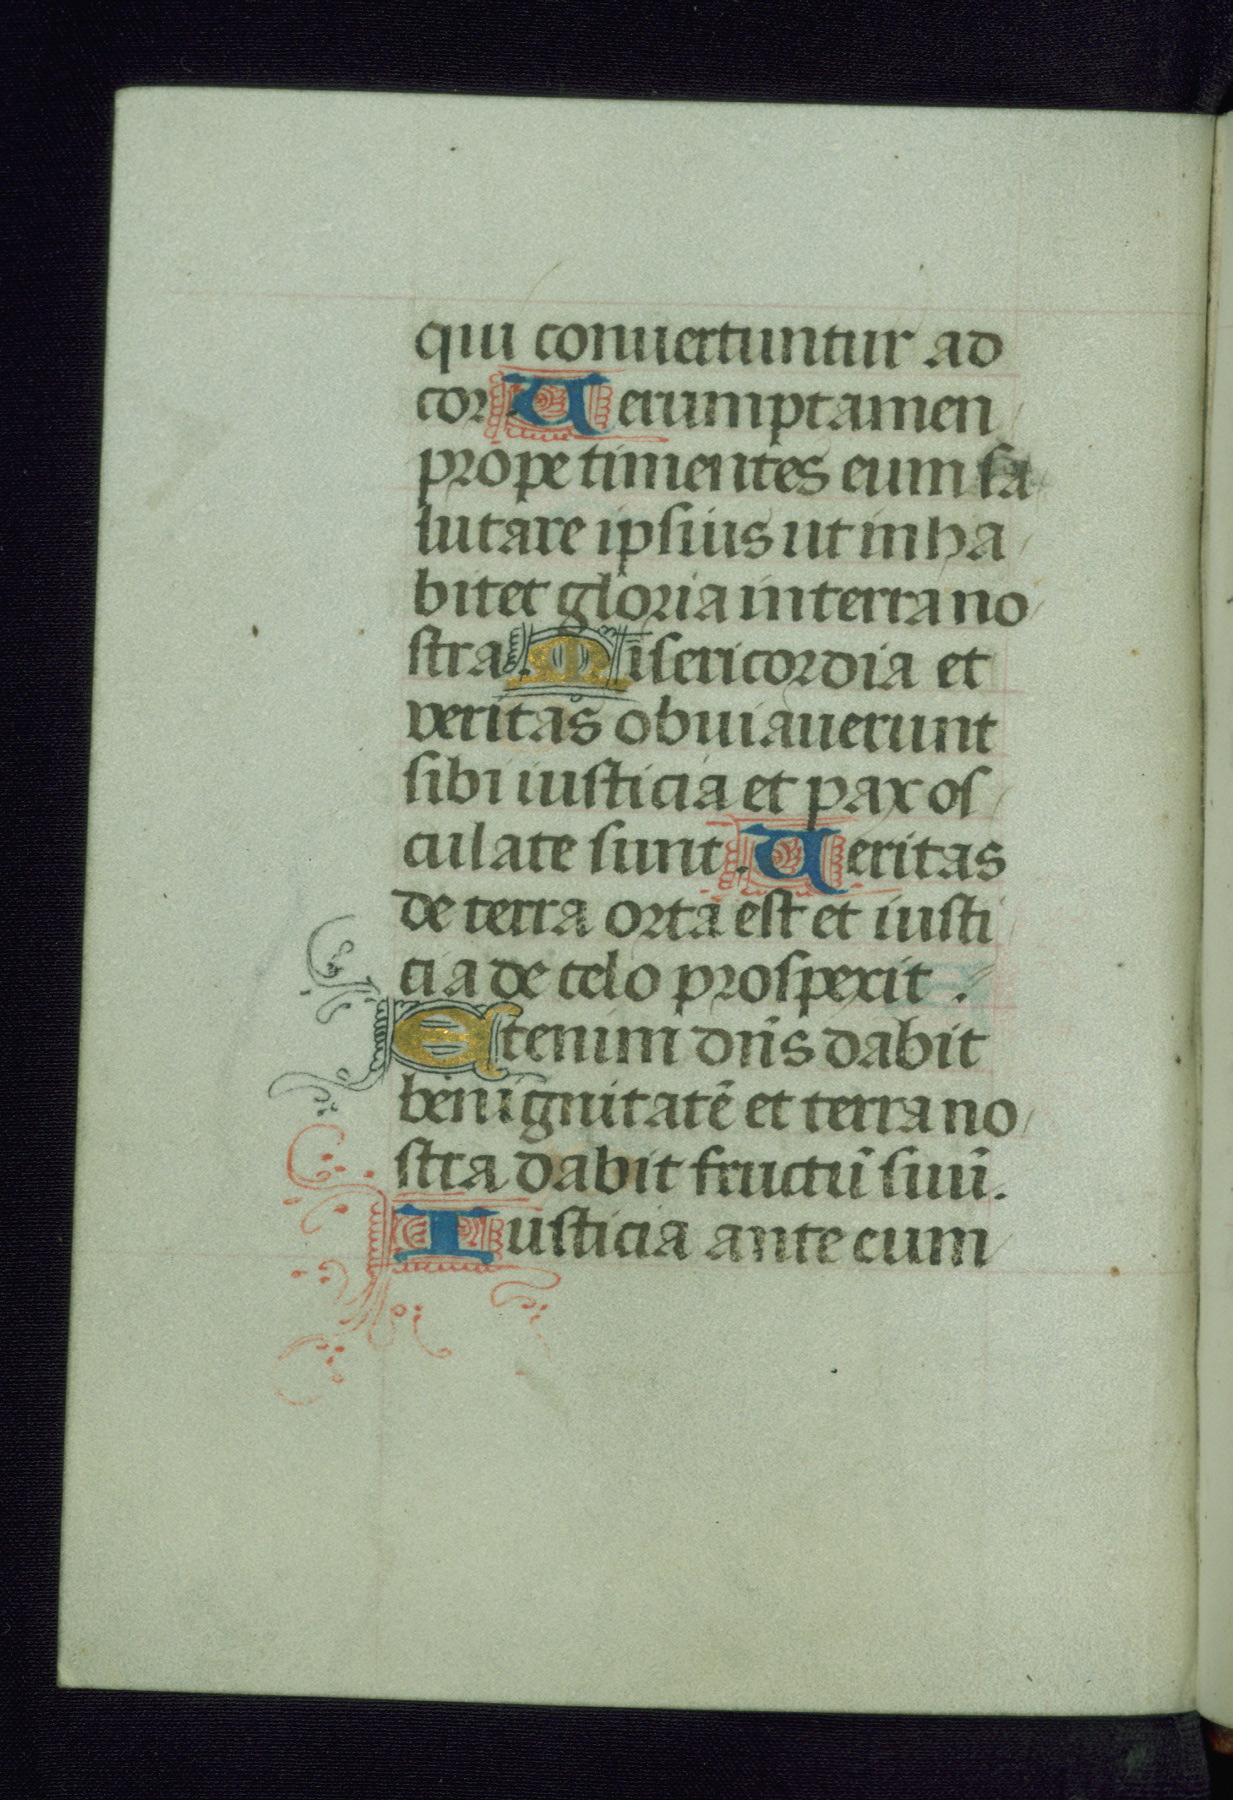 qui conuertuntur ad
cor. Uerumptamen
prope timentes eum sa
lutare ipsius ut inha
bitet gloria in terra no
stra. Misericordia et
veritas obuiauerunt
sibi iusticia et pax os
culate sunt. Ueritas
de terra orta est et iusti
cia de celo prosperit.
Etenim dn̄s dabit
benignitatē et terra no
stra dabit fructū suū.
Iusticia ante eum